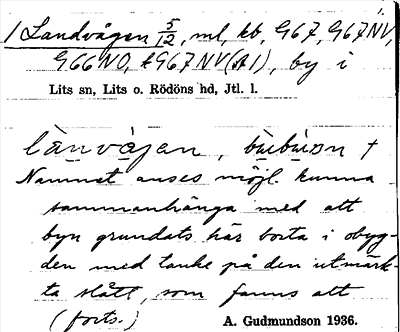 1 Landvågen 5/12, ml, kb, G67, G67NV,
G66NO, kG67NV(A1), by i
Lits sn, Lits o. Rödöns hd, Jtl. l.
lànvàgen, bùbùon †
Namnet anses möjl. kunna
sammanhänga med att
byn grundats här borta i obyg-
den med tanke på den utmärk-
ta slått, som fanns att
(forts.) A. Gudmundson 1936.